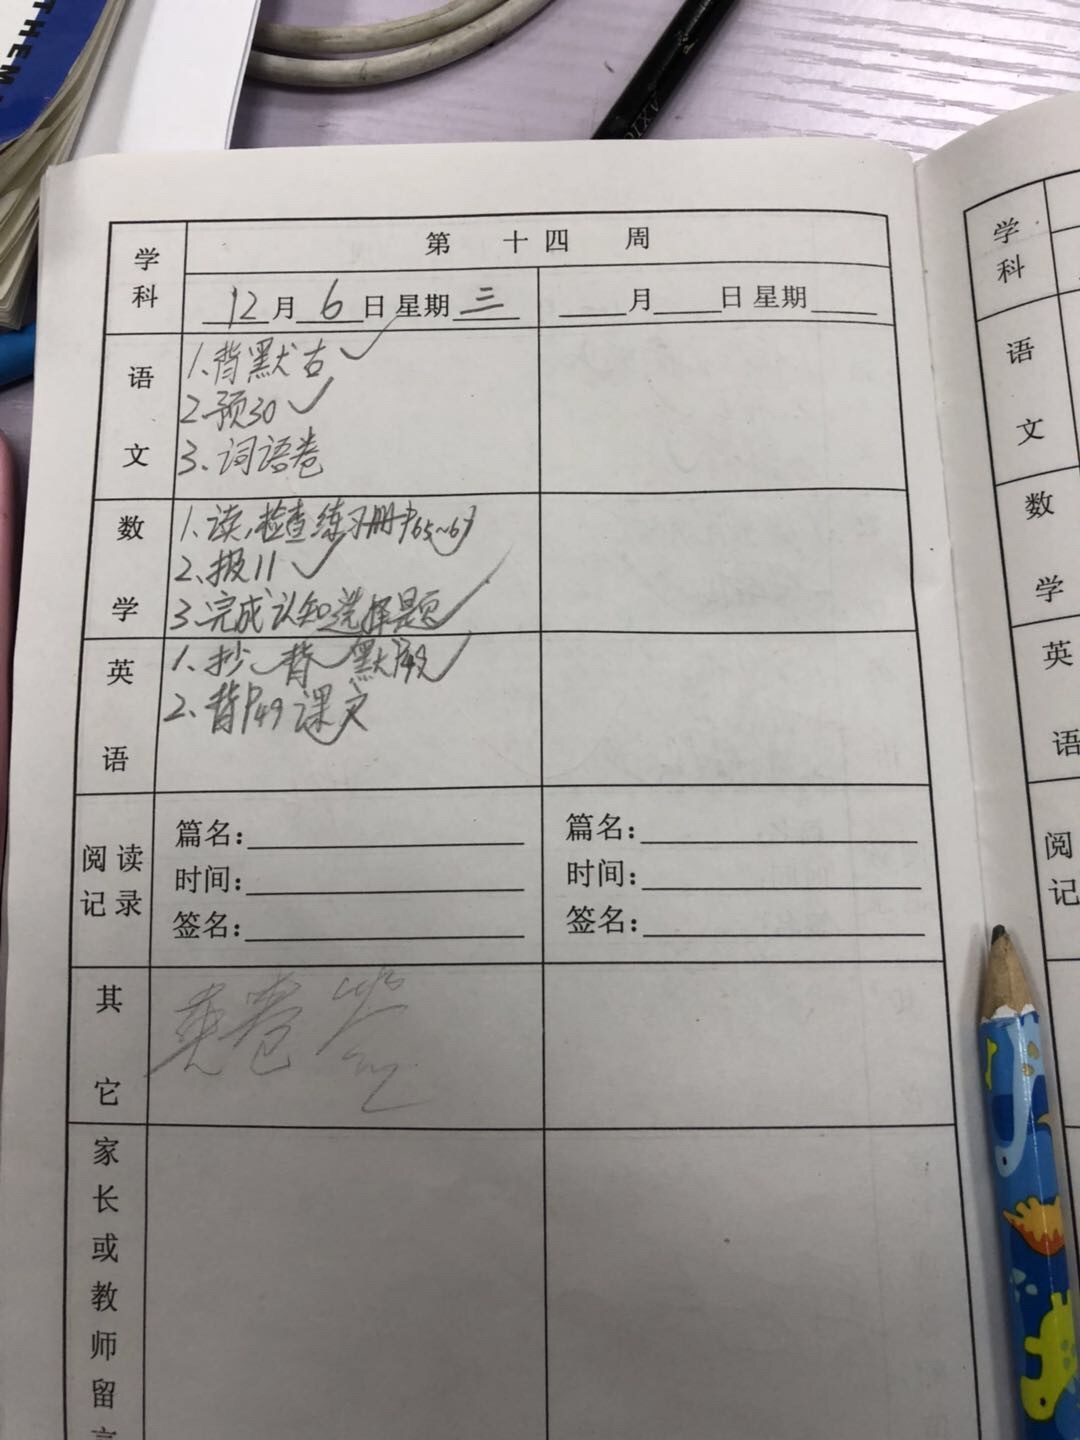 THEM
AXIO
学科
第 十四 周
12月6日星期三
___月___日星期___
语文
1、背默古
2、预30
3、词语卷
数学
1、读,检查练习册P65~67
2、报11
3、完成认知选择题
英语
1、抄 背 默P48
2、背P49课文
阅读记录
篇名:
时间:
签名:
篇名:
时间:
签名:
其它
卷 签
家长或教师留言
学科
语文
数学
英语
阅
记